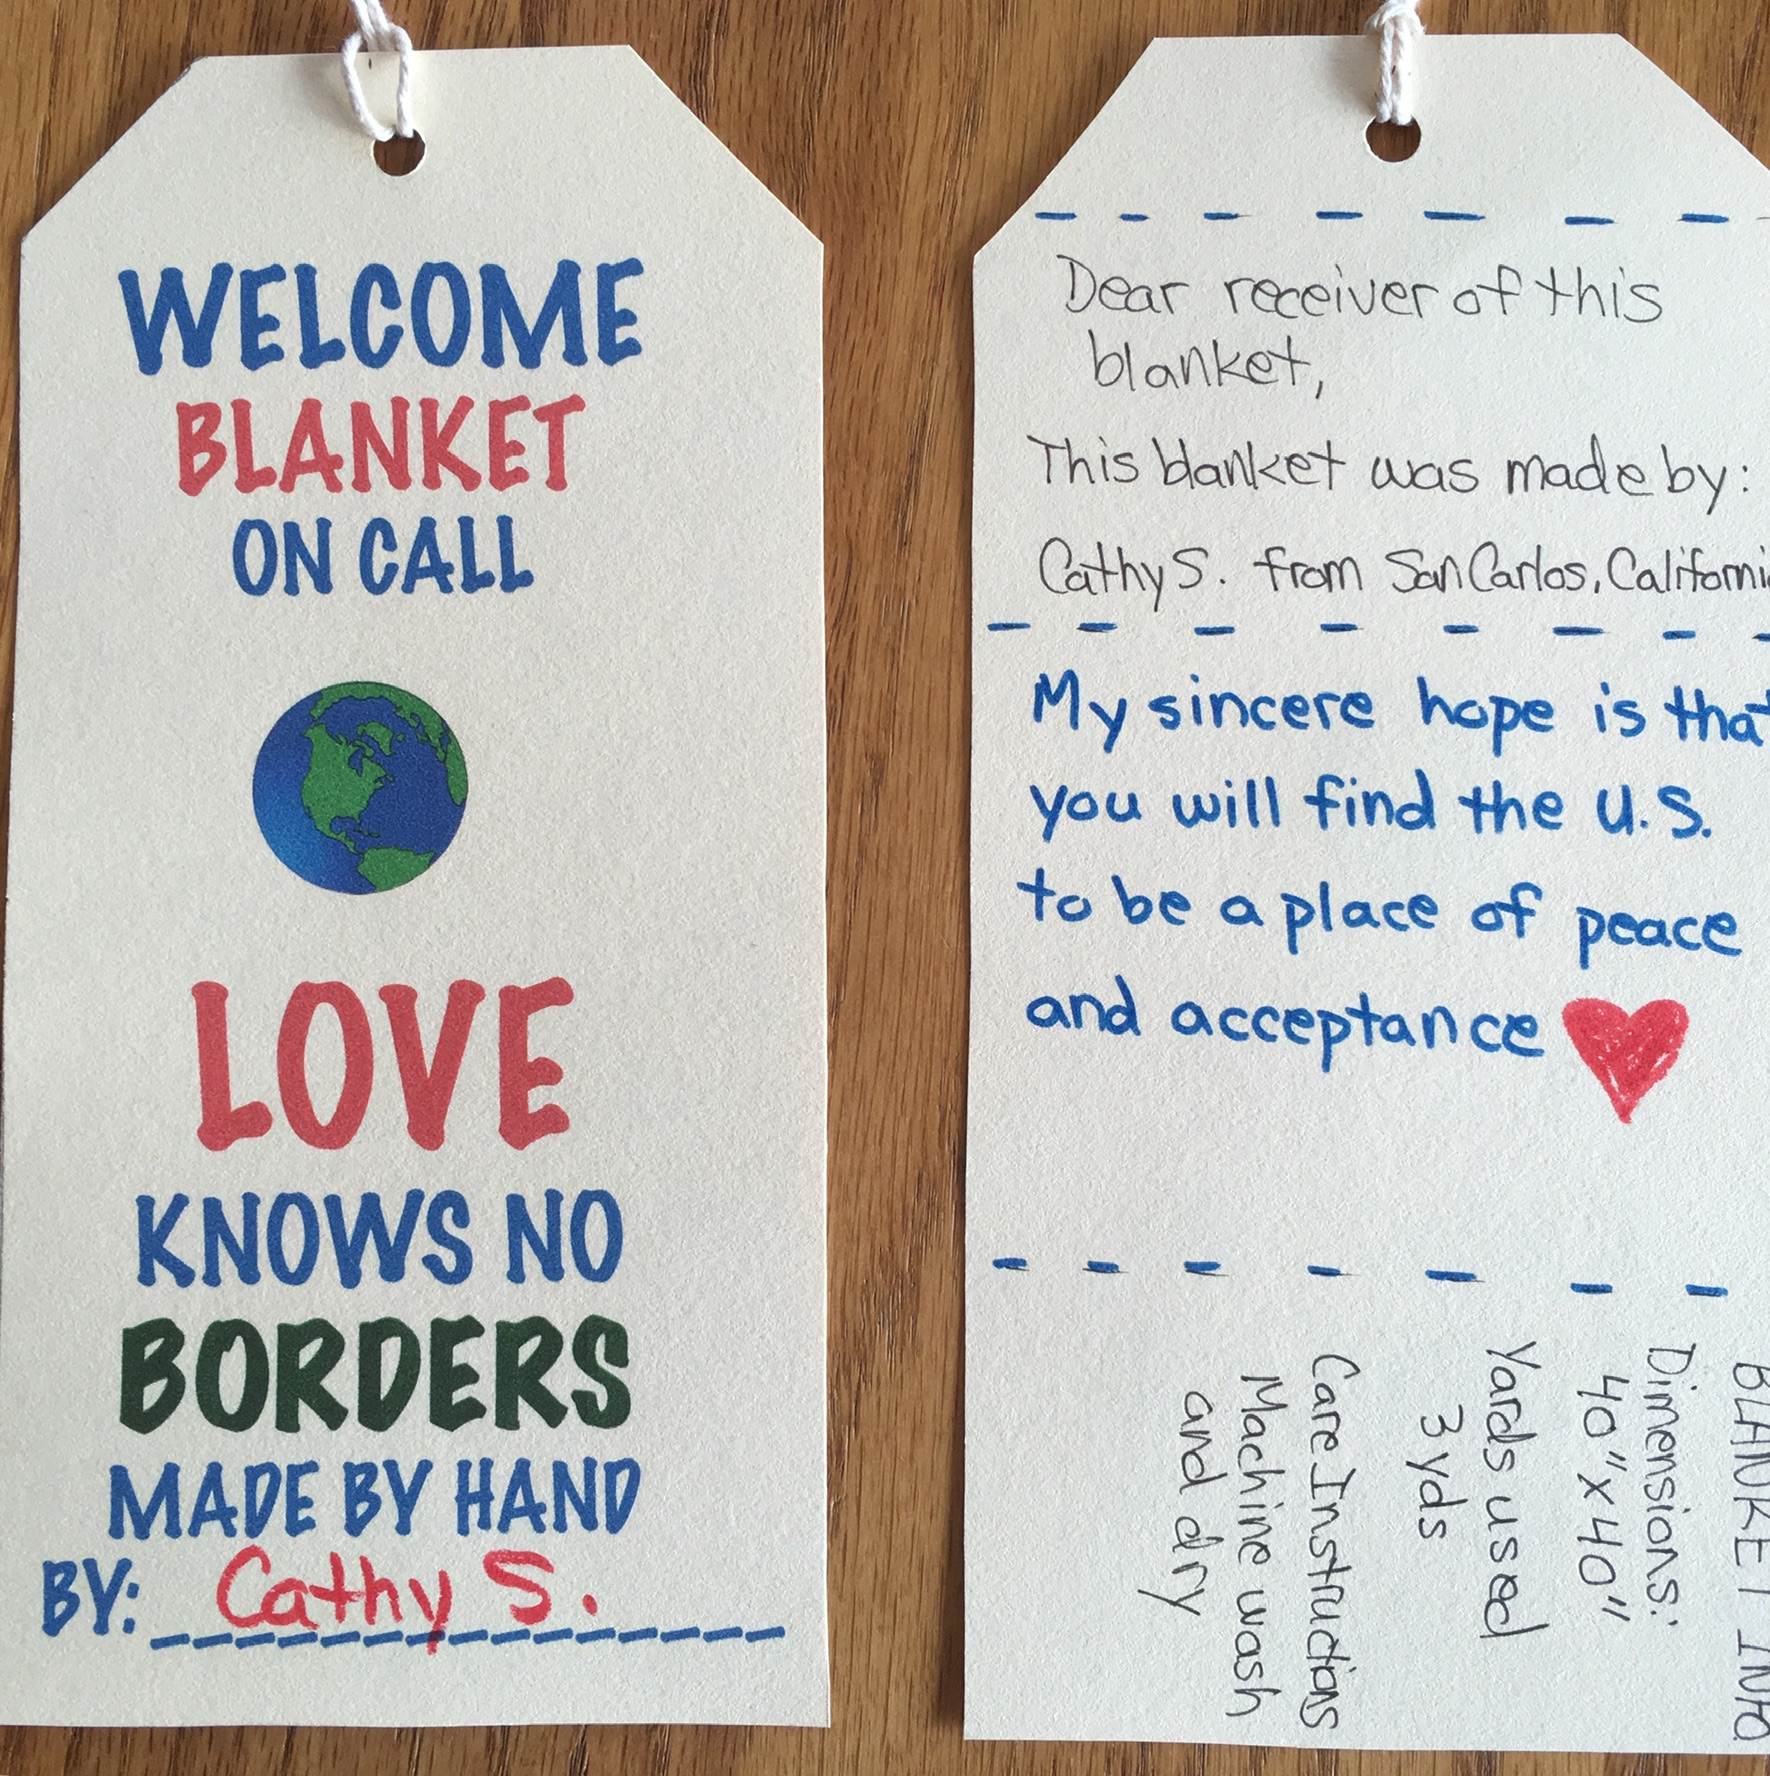 WELCOME
BLANKET
ON CALL
LOVE
KNOWS NO
BORDERS
MADE BY HAND
BY: Cathy S.
Dear receiver of this
blanket,
This blanket was made by:
Cathy S. from San Carlos, Californi
My sincere hope is that
you will find the U.S.
to be a place of peace
and acceptance
BLANKET INFO
Dimensions:
40" x 40"
Yards used
3 yds
Care Instructions
Machine wash
and dry